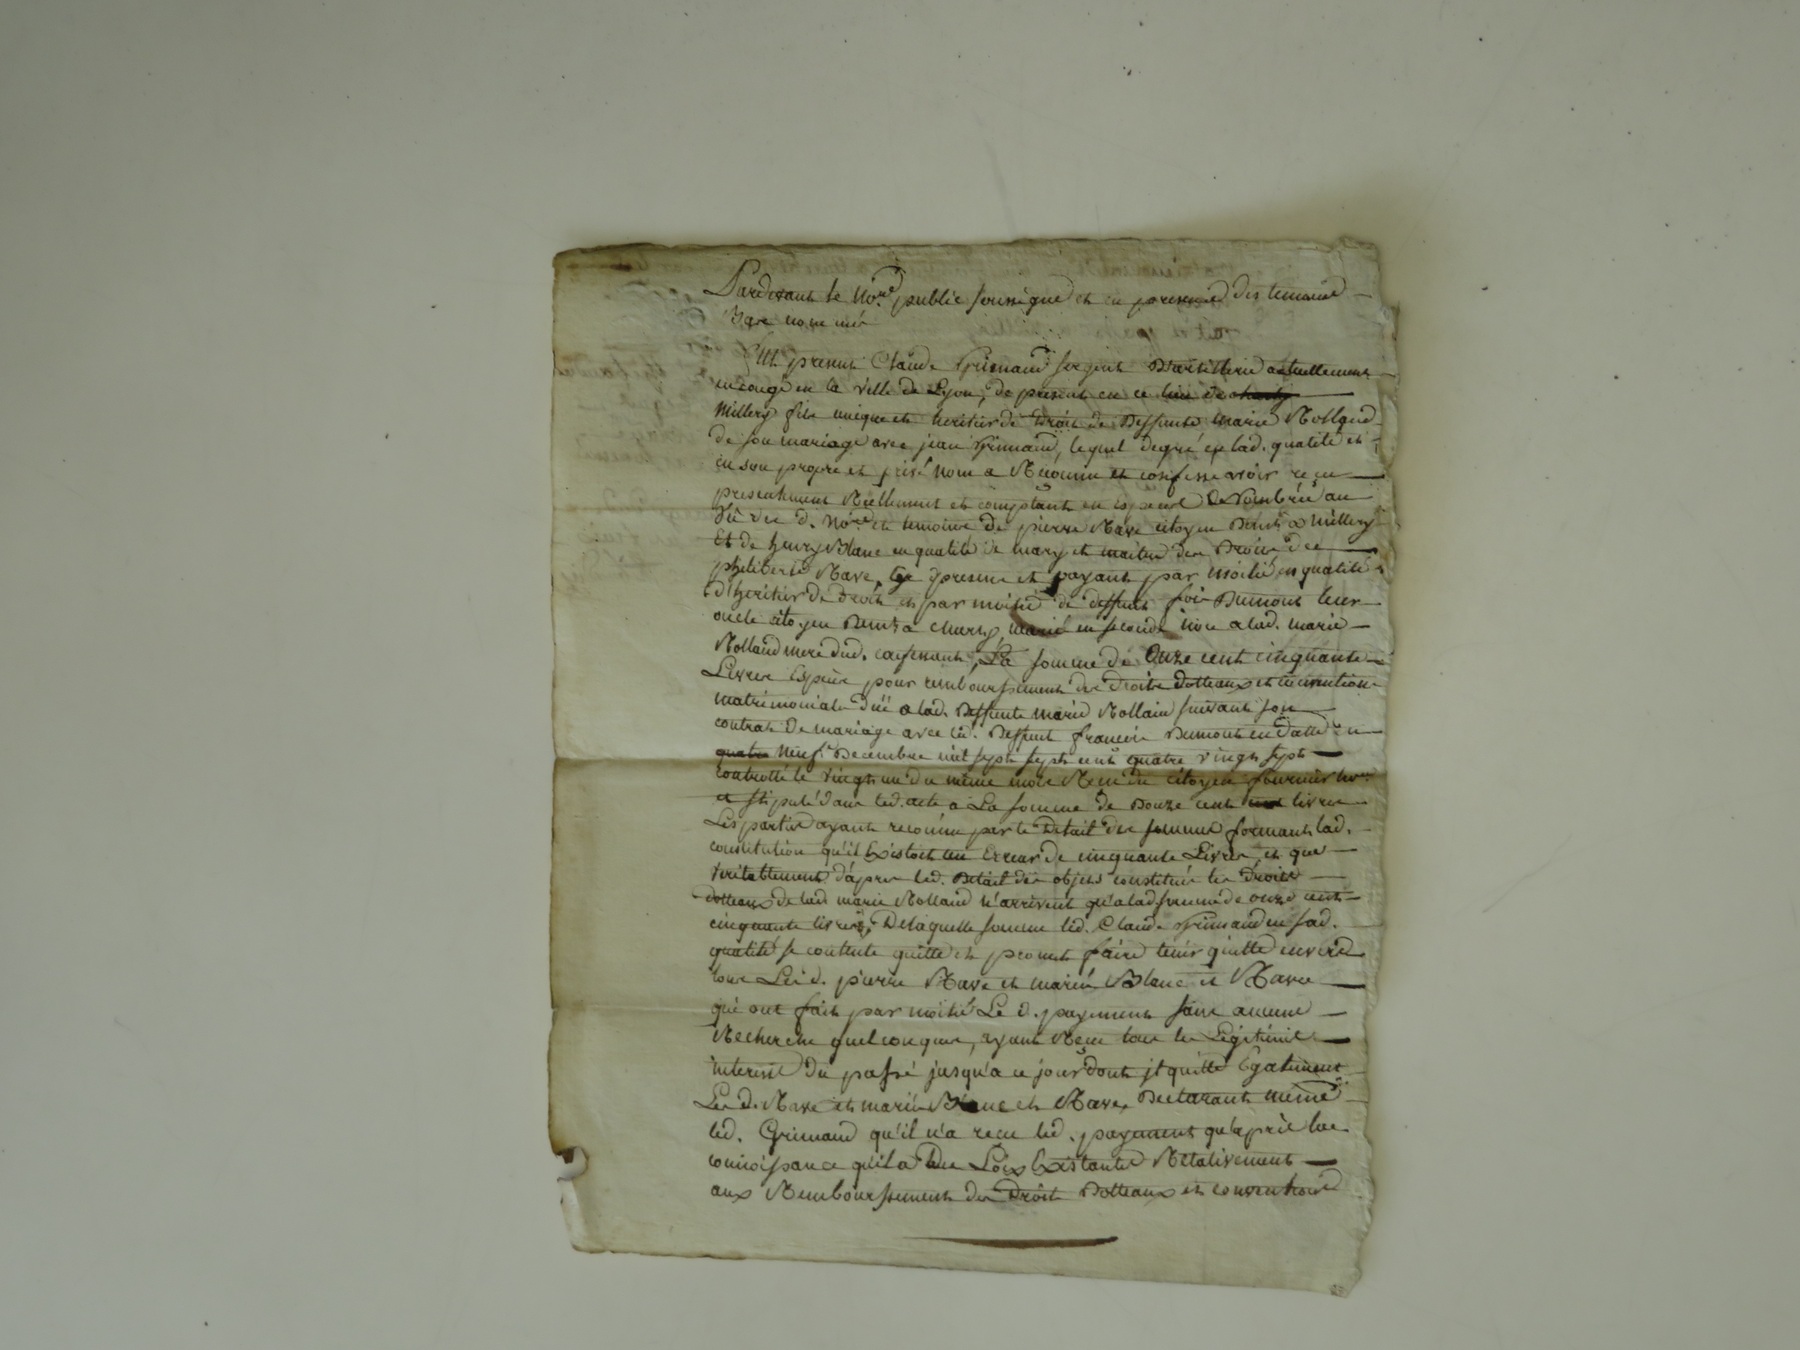 Pardevant le No.re public soussigné et en presence des temoins
Bas nommés
Est present Claude Grimaud sergent D'artillerie actuellement
en congé en la ville de Lyon, de present en ce lieu de
Millery fils unique et heritier de Droit de Deffunte Marie Rolland
de son mariage avec jean Grimaud, lequel degré en lad. qualité et
en son propre et privé Nom a Reconnu et confessé avoir reçu
presentement Réellement et comptant en especes De Nombrées au
Vû des d. No.re et temoins de pierre Rave citoyen Demt a Millery
Et de henry Blanc en qualité de mary et maitre des Droits de
philiberte Rave, presens et payant par moitié en qualité
d'heritiers de droit et par moitié de deffunt fois Dumont leur
oncle citoyen Demt a Charly, marié en seconde Nôce a lad. marie
Rolland mere dud. confessant, La somme de Onze cent cinquante
Livres Espèces pour remboursement des Droits dotteaux et convention
matrimoniale düe a lad. Deffunte marie Rolland suivant son
contrat de mariage avec led. Deffunt francois Dumont en datte du
quatre Neuf Decembre mil sept sept cent quatre vingt sept
controllé le vingt un du même mois Reçu du citoyen fournier no.re
et stipulé dans led. acte a La somme de Douze cent livres
Les parties ayant reconnu par le Détail des sommes formant lad.
constitution qu'il Existoit un Erreur de cinquante Livres, et que
veritablement d'apres led. Détail des objets constitués les Droits
dotteaux de lad. marie Rolland n'arrivent qu'a lad. somme de onze cent
cinquante livres, De laquelle somme led. Claude Grimaud en sad.
qualité se contente quitte et promet faire tenir quitte envers
tous Les d. pierre Rave et mariés Blanc et Rave
qui ont fait par moitié Le d. payement sans aucune
Recherche quelconque, ayant Reçu tous les Légitimes
interest du passé jusqu'a ce jour dont il quitte Egalement
Les d. Rave et mariés Blanc et Rave, Declarant même
led. Grimaud qu'il n'a reçu led. payement qu'après la
connoissance qu'il a des Loix Existantes Relativement
aux Remboursement des Droits Dotteaux et conventions